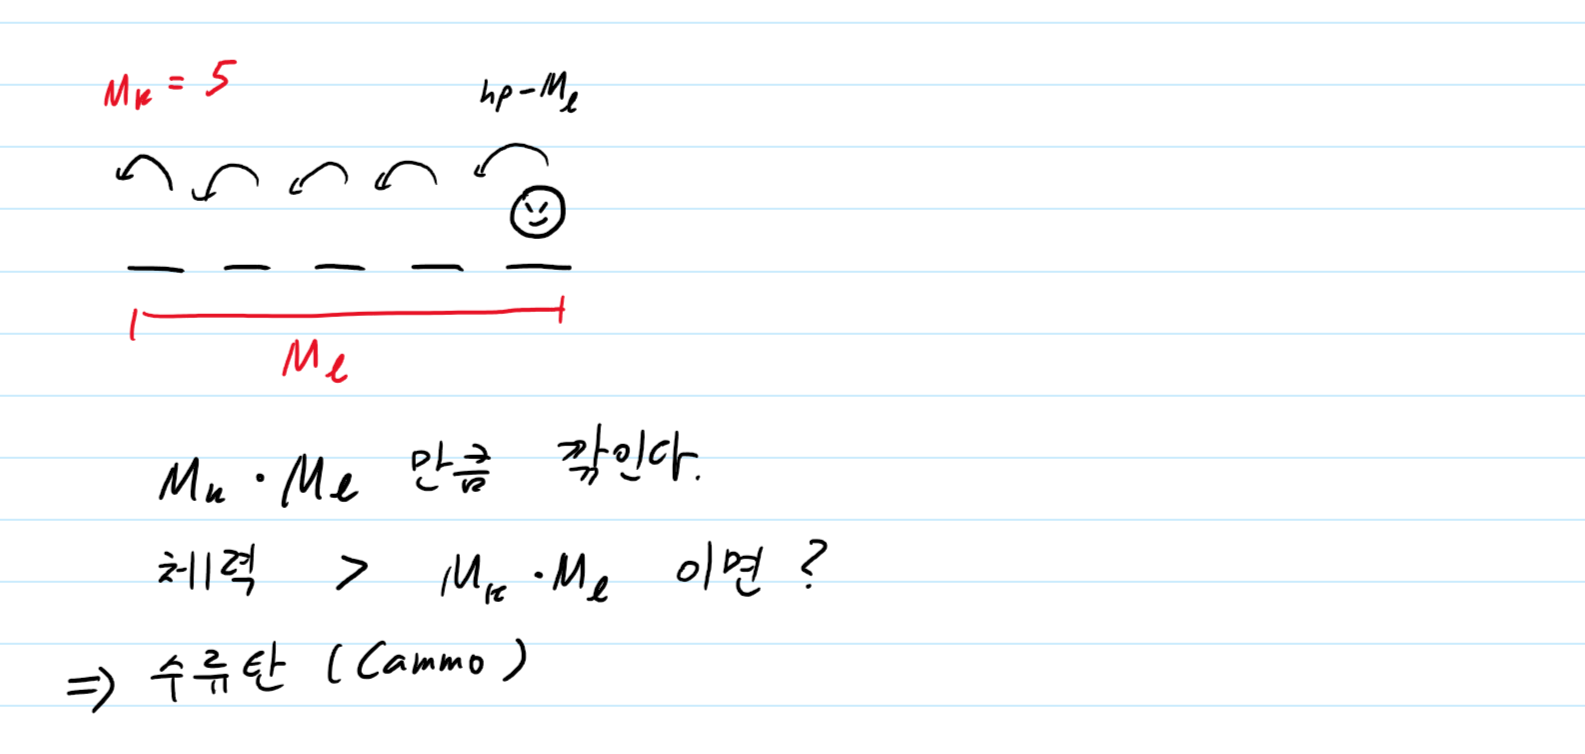 M_K = 5
hp-M_l
M_l
M_K · M_l 만큼 깎인다.
체력 > M_K · M_l 이면 ?
⇒ 수류탄 (Cammo)